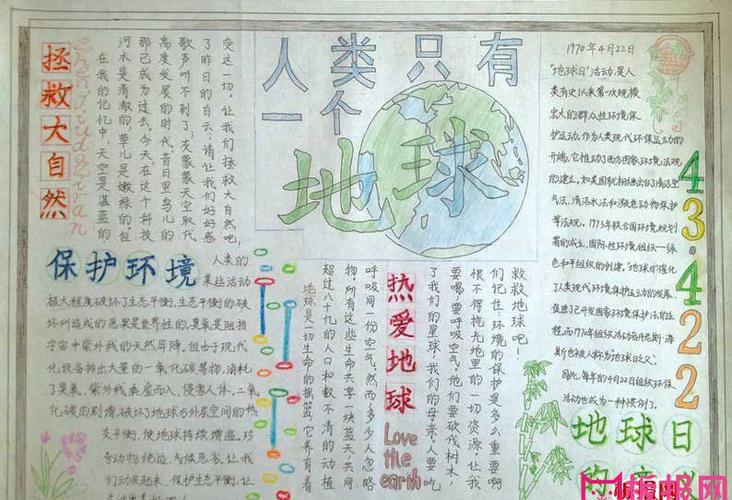 人类只有
一个
地球
拯救大自然
在我的记忆中，天空是湛蓝的
河水是清澈的，草儿是嫩绿的。但
那已成为过去。今天在这个科技
高度发展的时代，昔日里鸟儿的
歌声听不到了，灰蒙蒙天空取代
了昨日的白云，请让我们好好感
受这一切，让我们拯救大自然吧，
保护环境
人类的
某些活动
极大程度破坏了生态平衡。生态平衡的破
坏所造成的恶果是世界性的。臭氧是阻挡
宇宙中紫外线的天然屏障。但由于现代
化设备排出大量的一氧化碳等物，消耗
了臭氧，紫外线乘虚而入，侵害人体。二氧
化碳的剧增，破坏了地球与外星空间的热
平衡，使地球持续增温，珍
奇动物绝迹，气候恶劣，让我
们动员起来，保护生态平衡，
热爱地球
Love
the
earth
地球是一切生命的摇篮，它养育着
超过八十亿的人口和数不清的动植
物。所有这些生命共享一块蓝天，共同
呼吸同一份空气。然而多少人忽略
了我们的星球，我们的母亲，人要吃
要喝，要呼吸空气，他们要砍伐树木
恨不得挖光地里的一切资源，让我
们记住，环境的保护是多么重要啊
救救地球吧！
1970年4月22日
“地球日”活动，是人
类有史以来第一次规模
宏大的群众性环境保
护运动。作为人类现代环保运动的
开端，它推动了西方国家环境法规
的建立，如美国就相继出台了清洁空
气法、清洁水法和濒危动物保护
等法规。1973年联合国环境规划
署的成立，国际性环境组织—绿
色和平组织的创建，“地球日”催化
了人类现代环境保护运动的发展，
促进了已开发国家环境保护
因此，每年的4月22日组织环保
活动也成为一种惯例了。
4
3
4
2
2
地球日